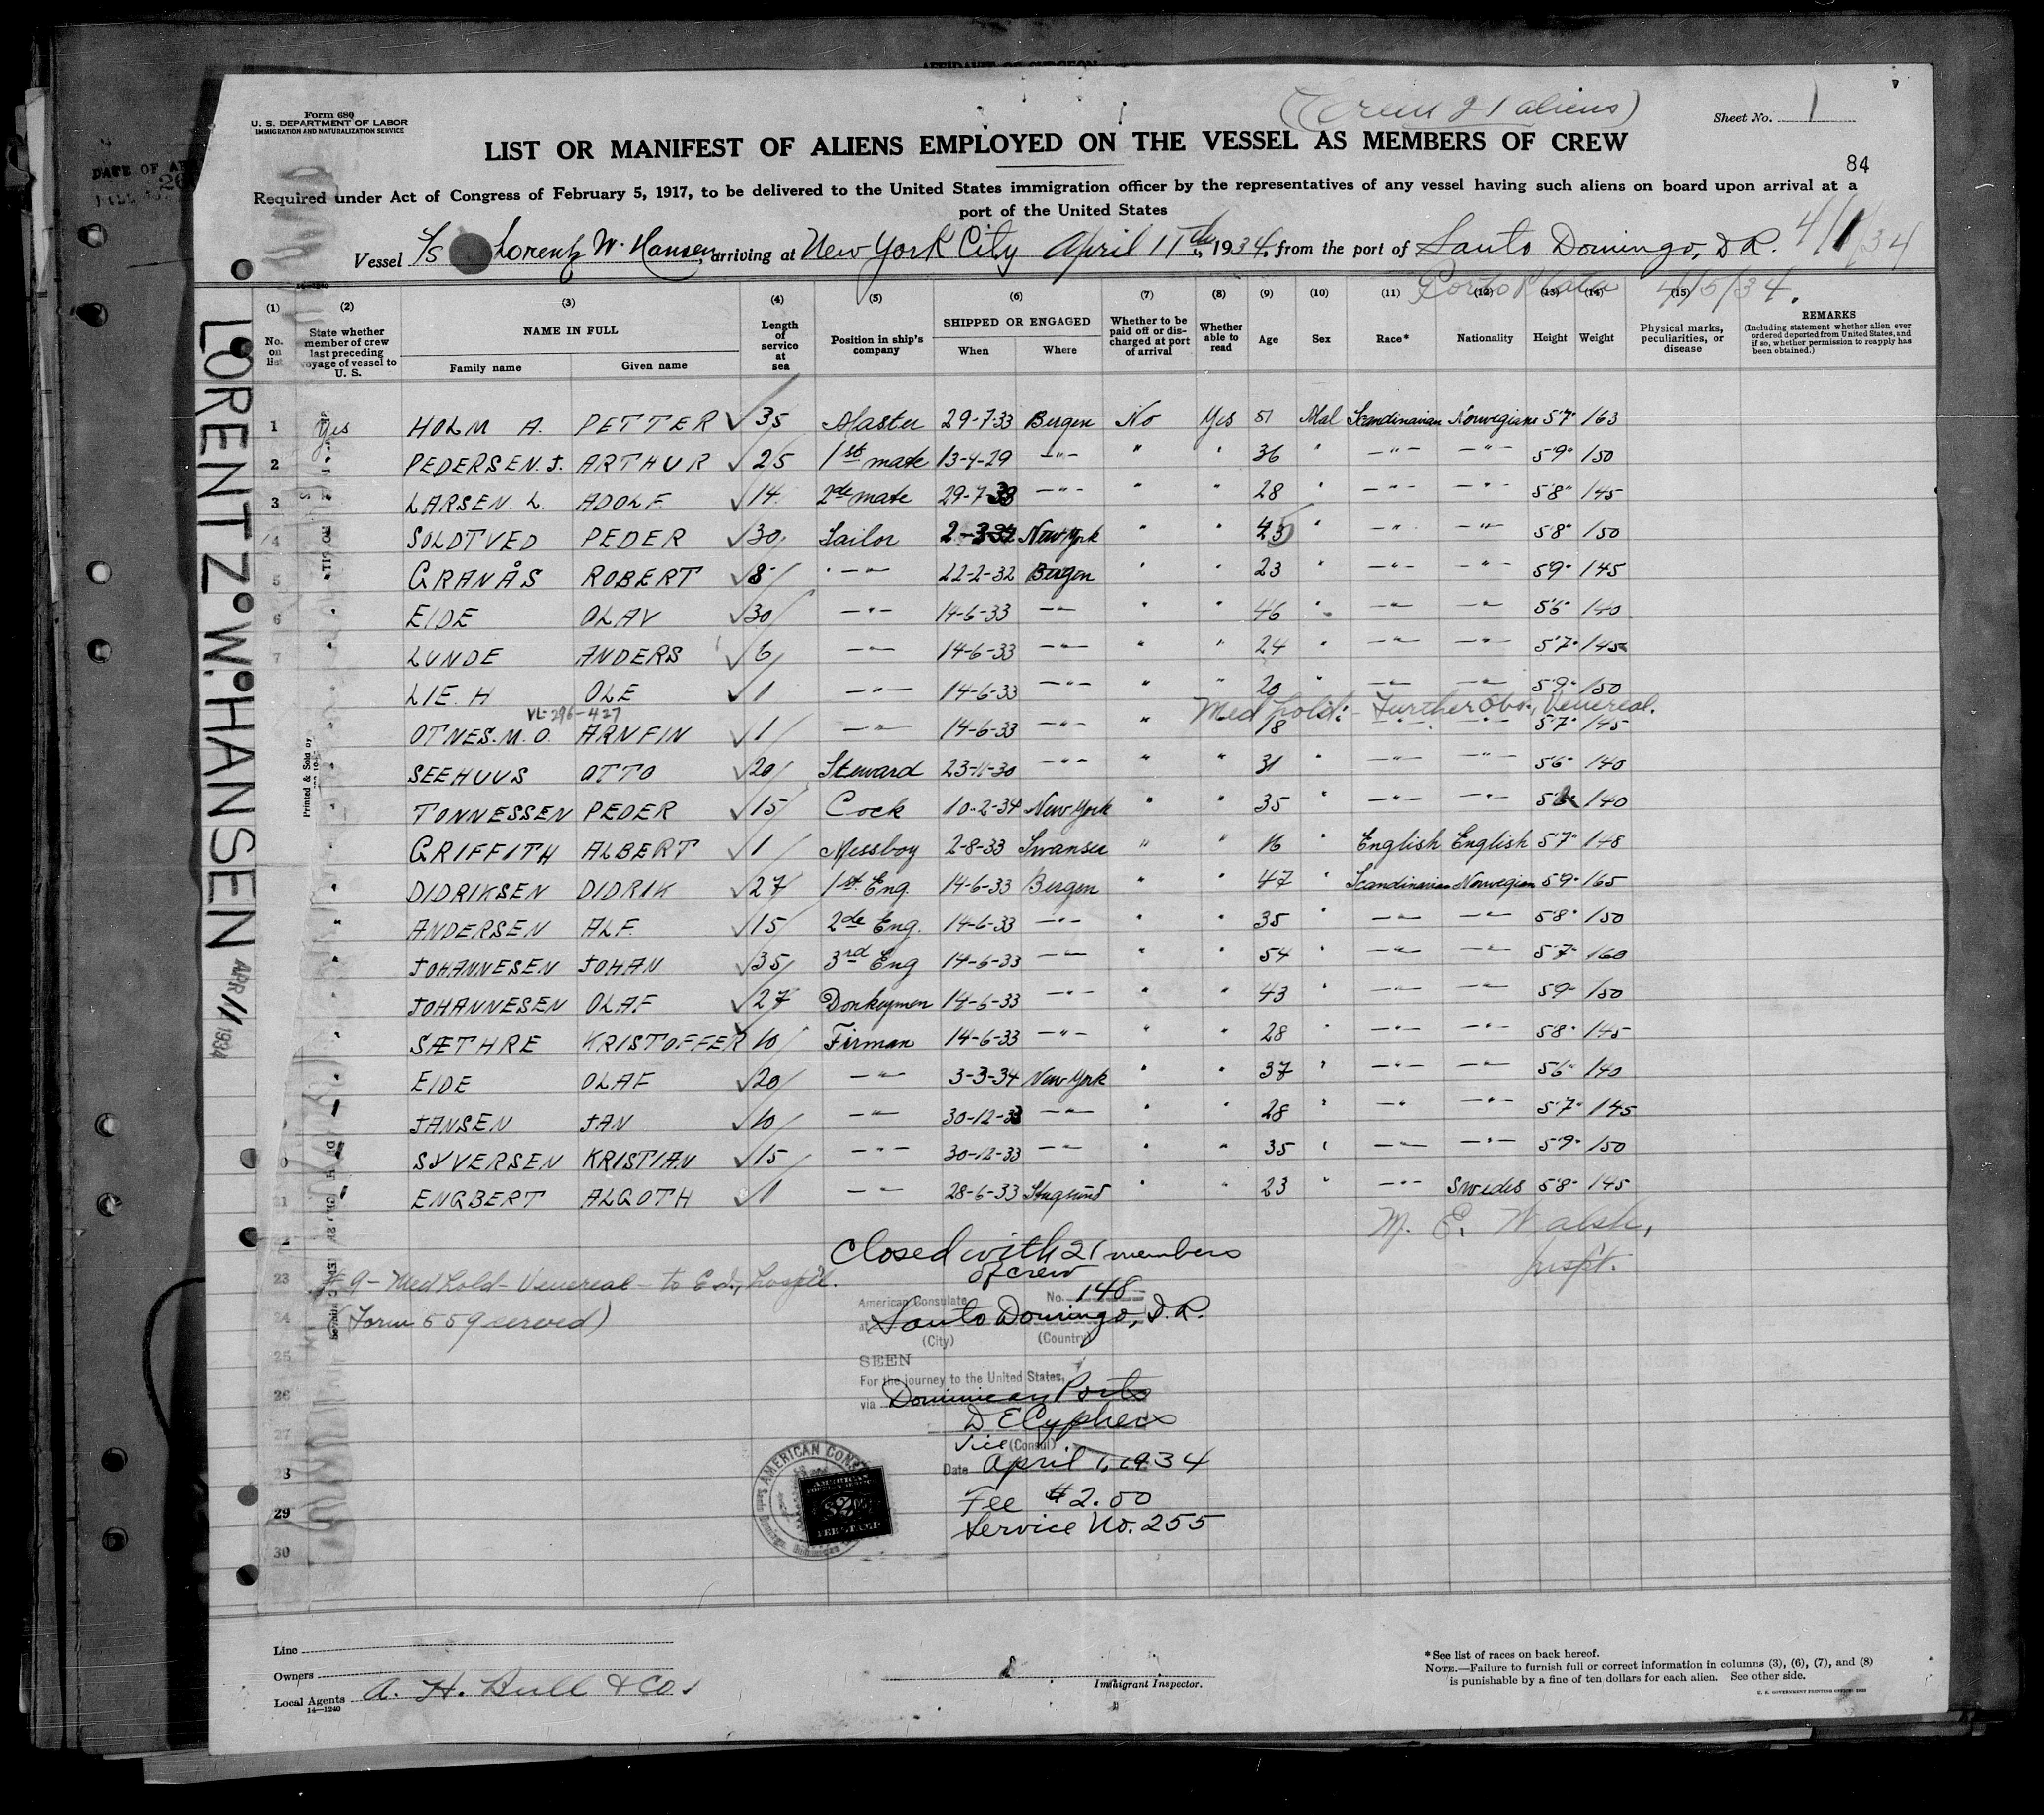 AFFIDAVIT OF SURGEON
Form 680
U. S. DEPARTMENT OF LABOR
IMMIGRATION AND NATURALIZATION SERVICE
(Crew 21 aliens)
Sheet No. 1
LIST OR MANIFEST OF ALIENS EMPLOYED ON THE VESSEL AS MEMBERS OF CREW
84
Required under Act of Congress of February 5, 1917, to be delivered to the United States immigration officer by the representatives of any vessel having such aliens on board upon arrival at a
port of the United States
Vessel S/s Lorentz W. Hansen, arriving at New York City April 11th, 1934, from the port of Santo Domingo, D.R. 4/1/34
Porto Plata 4/5/34.
(1) (2) (3) (4) (5) (6) (7) (8) (9) (10) (11) (12) (13) (14) (15)
No. on list
State whether member of crew last preceding voyage of vessel to U. S.
NAME IN FULL
Family name Given name
Length of service at sea
Position in ship's company
SHIPPED OR ENGAGED
When Where
Whether to be paid off or discharged at port of arrival
Whether able to read
Age Sex Race* Nationality Height Weight
Physical marks, peculiarities, or disease
REMARKS
(Including statement whether alien ever ordered deported from United States, and if so, whether permission to reapply has been obtained.)
1 Yes HOLM A. PETTER √ 35 Master 29-7-33 Bergen No Yes 51 Mal Scandinavian Norwegians 5'7" 163
2 PEDERSEN. J. ARTHUR √ 25 1st mate 13-4-29 —"— " " 36 " —"— —"— 5'9" 150
3 LARSEN. L. ADOLF √ 14 2de mate 29-7-33 —"— " " 28 " —"— —"— 5'8" 145
4 SOLDTVED PEDER √ 30 Sailor 2-3-34 New York " " 45 " —"— —"— 5'8" 150
5 GRANÅS ROBERT √ 8 —"— 22-2-32 Bergen " " 23 " —"— —"— 5'9" 145
6 " EIDE OLAV √ 30 —"— 14-6-33 —"— " " 46 " —"— —"— 5'6" 140
7 " LUNDE ANDERS √ 6 —"— 14-6-33 —"— " " 24 " —"— —"— 5'7" 145
LIE. H OLE √ 1 —"— 14-6-33 —"— " " 20 " —"— —"— 5'9" 150
VL-296-427
Med hold:- Further Obs., Venereal.
" OTNES. M. O. ARNFIN √ 1 —"— 14-6-33 —"— " 18 —"— —"— 5'7" 145
" SEEHUUS OTTO √ 20 Steward 23-11-30 —"— " " 31 " —"— —"— 5'6" 140
" TONNESSEN PEDER √ 15 Cock 10-2-34 New York " " 35 " —"— —"— 140
" GRIFFITH ALBERT √ 1 Messboy 2-8-33 Swansea " " 16 " English English 5'7" 148
" DIDRIKSEN DIDRIK √ 27 1st. Eng. 14-6-33 Bergen " " 47 " Scandinavian Norwegian 5'9" 165
" ANDERSEN ALF. √ 15 2de Eng. 14-6-33 —"— " " 35 " —"— —"— 5'8" 150
" JOHANNESEN JOHAN √ 35 3rd Eng 14-6-33 —"— " " 54 " —"— —"— 5'7" 160
" JOHANNESEN OLAF √ 27 Donkeymen 14-6-33 —"— " " 43 " —"— —"— 5'9" 150
" SÆTHRE KRISTOFFER √ 10 Firman 14-6-33 —"— " " 28 " —"— —"— 5'8" 145
" EIDE OLAF √ 20 —"— 3-3-34 New York " " 37 " —"— —"— 5'6" 140
JANSEN JAN √ 10 —"— 30-12-33 —"— " " 28 " —"— —"— 5'7" 145
SYVERSEN KRISTIAN √ 15 —"— 30-12-33 —"— " " 35 " —"— —"— 5'9" 150
21 ENGBERT ALGOTH √ 1 —"— 28-6-33 " " 23 " —"— Swedes 5'8" 145
M. E. Walsh,
Inspt.
Closed with 21 members
of crew
23 # 9 - Med hold - Venereal - to E.I., hospit'l.
24 (Form 559 served)
25
26
27
28
29
30
American Consulate No. 148
at Santo Domingo, D.R.
(City) (Country)
SEEN
For the journey to the United States,
via Dominican Ports
D E Cyphers
Vice (Consul)
Date April 1, 1934
Fee $2.00
Service No. 255
AMERICAN CONS
AMERICAN
FEE STAMP
LORENTZ W. HANSEN
APR 11 1934
Printed & Sold by
Line
Owners
Local Agents A. H. Bull & Co.
14—1240
Immigrant Inspector.
*See list of races on back hereof.
NOTE.—Failure to furnish full or correct information in columns (3), (6), (7), and (8)
is punishable by a fine of ten dollars for each alien. See other side.
U. S. GOVERNMENT PRINTING OFFICE